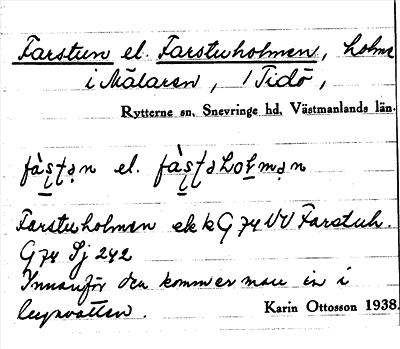 Farstun el. Farstuholmen, holme
i Mälaren, 1 Tidö,
Rytterne sn, Snevringe hd, Västmanlands län.
fàstan el. fàstaholman
Farstuholmen ek k G 74 VV Farstuh.
G 74 Sj 242
Innanför den kommer man in i
lugnvatten.
Karin Ottosson 1938.